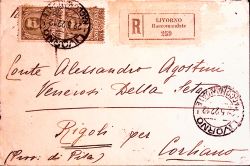 LIVORNO
Raccomandata
R
259
LIVORNO
Conte Alessandro Agostini
Venerosi Della Seta
Rigoli per
Corliano
(Prov. di Pisa)